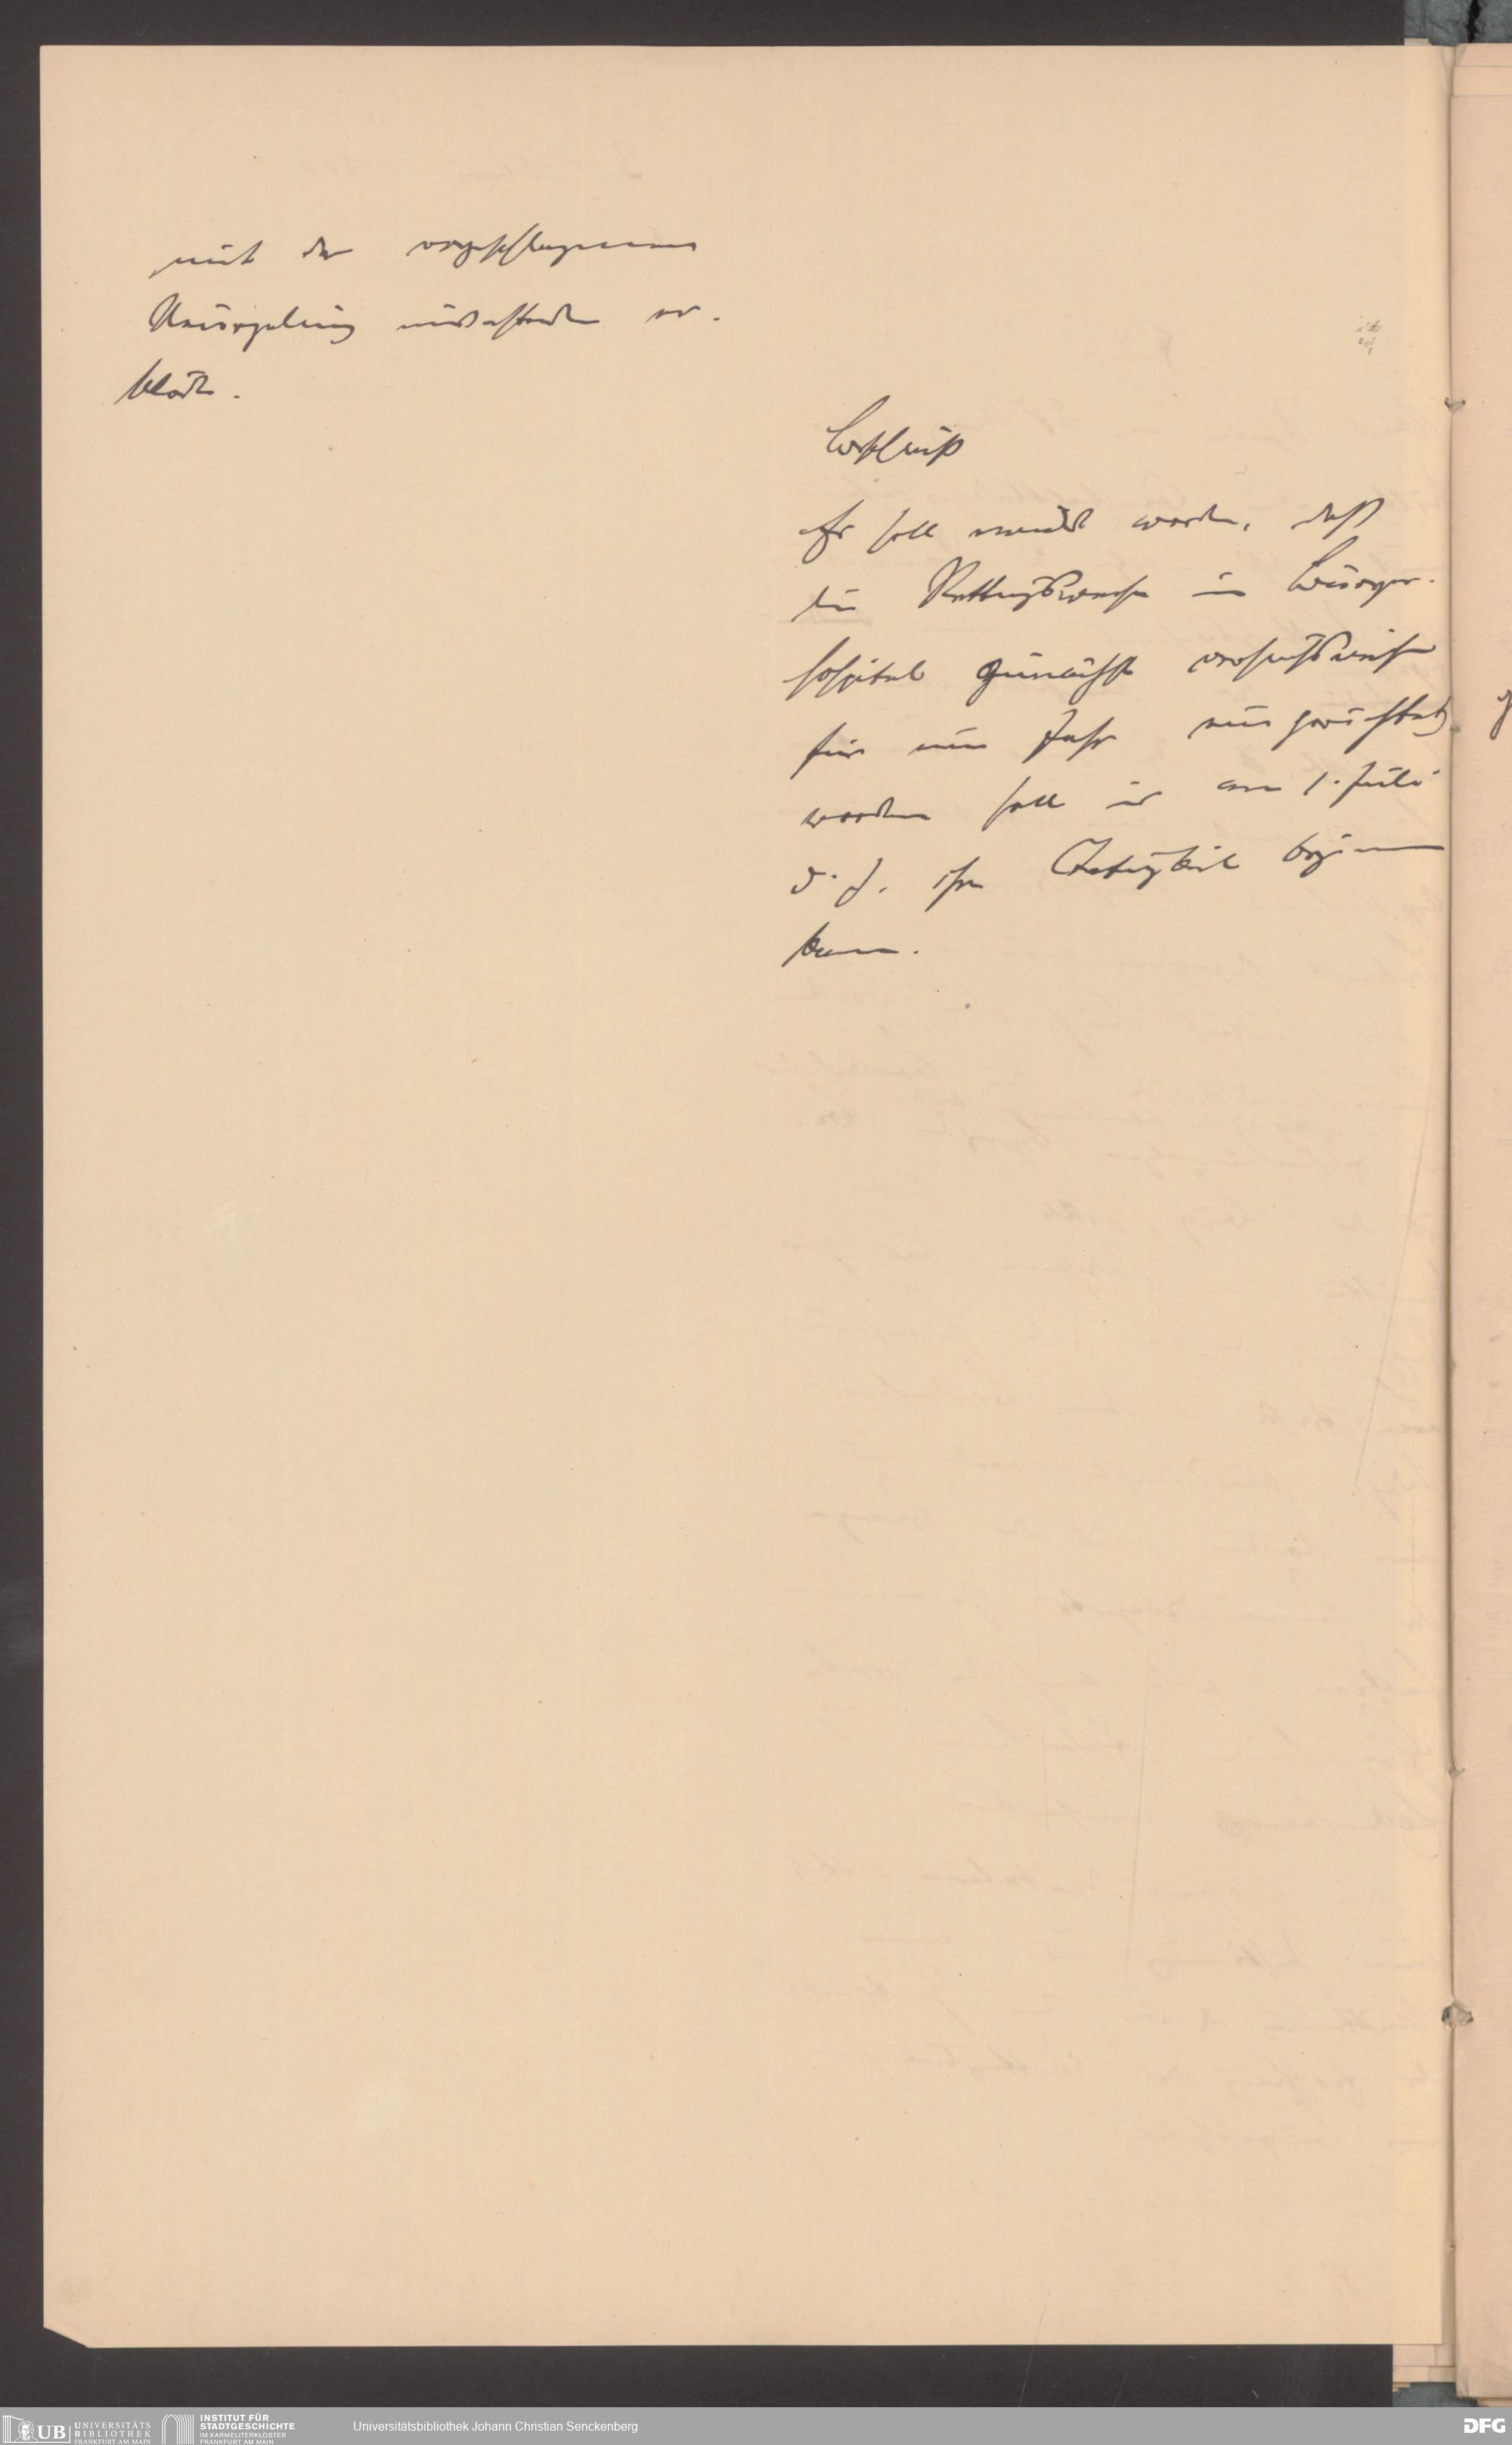 mit der vorgeschlagenen
Neuregelung einverstanden er-
klärte.
Beschluß
Es soll werden, daß
die Rettungswache im Bürger-
hospital zunächst versuchsweise
für ein Jahr eingerichtet
werden soll u am 1. Juli
d. J. ihre Thätigkeit beginnen
kann.
UB UNIVERSITÄTS
BIBLIOTHEK
FRANKFURT AM MAIN
INSTITUT FÜR
STADTGESCHICHTE
IM KARMELITERKLOSTER
FRANKFURT AM MAIN
Universitätsbibliothek Johann Christian Senckenberg
DFG